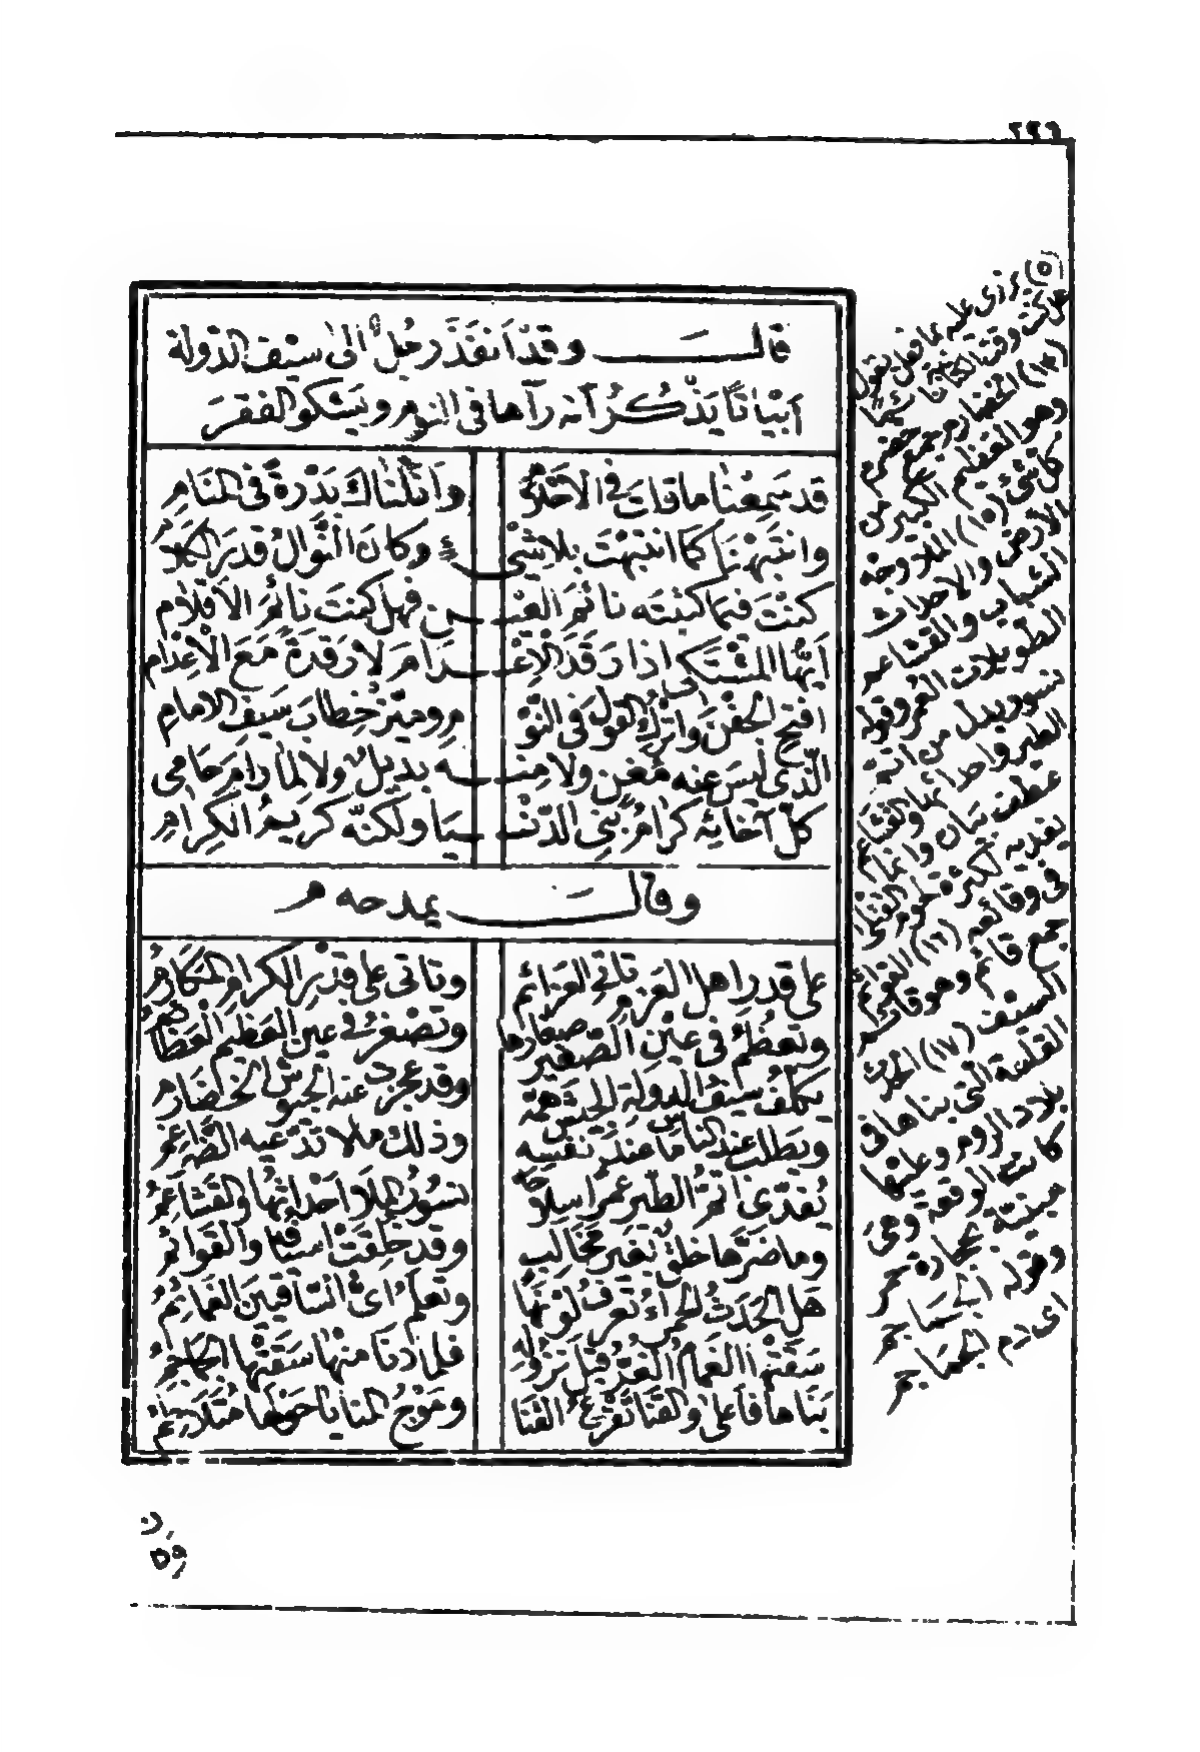 ٢٩٩
قالـــــــــ وقد انفذ رجل الى سيف الدولة
ابياتا يذكر انه رآها في النوم ويشكو الفقر
قد سمعنا ما قلت في الاحلام وانلناك بدرة في المنام
وانتبهنا كما انتبهت بلا شيء وكان النوال قدر الكلام
كنت فيما كتبته نائم العيـــن فهل كنت نائم الاقلام
ايها المشتكي اذا رقد الاعـــدام لا رقدة مع الاعدام
افتح الجفن واترك القول في النو م وميز خطاب سيف الامام
الذي ليس عنه مغن ولا منـــه بديل ولا لما رام حامي
كل آخائه كرام بني الدنـــيا ولكنه كريم الكرام
وقالـــــــــ يمدحه
على قدر اهل العزم تاتي العزائم وتاتي على قدر الكرام المكارم
وتعظم في عين الصغير صغارها وتصغر في عين العظيم العظائم
يكلف سيف الدولة الجيش همه وقد عجزت عنه الجيوش الخضارم
ويطلب عند الناس ما عند نفسه وذلك ما لا تدعيه الضراغم
يفدى اتم الطير عمرا سلاحه نسور الملا احداثها والقشاعم
وما ضرها خلق بغير مخالب وقد خلقت اسيافه والقوائم
هل الحدث الحمراء تعرف لونها وتعلم اي الساقيين الغمائم
سقتها الغمام الغر قبل نزوله فلما دنا منها سقتها الجماجم
بناها فاعلى والقنا تقرع القنا وموج المنايا حولها متلاطم
(٥) يزرى عليه بما فعل يقول
(١٤) الخضارم جمع خضرم
وهو العظيم الكبير من
كل شيء (١٥) الملا وجه
الارض والاحداث
الشباب والقشاعم
الطويلات العمر وقوله
نسور بدل من اتم
الطير واحداثها والقشاعم
عطف بيان وانما
يفديه لكثرة لحوم القتلى
في وقائعه (١٦) القوائم
جمع قائم وهو قائم
السيف (١٧) الحدث
القلعة التي بناها في
بلاد الروم وعليها
كانت الوقعة وهي
مبنية بحجارة حمر
وقوله الجماجم
اي دم الجماجم